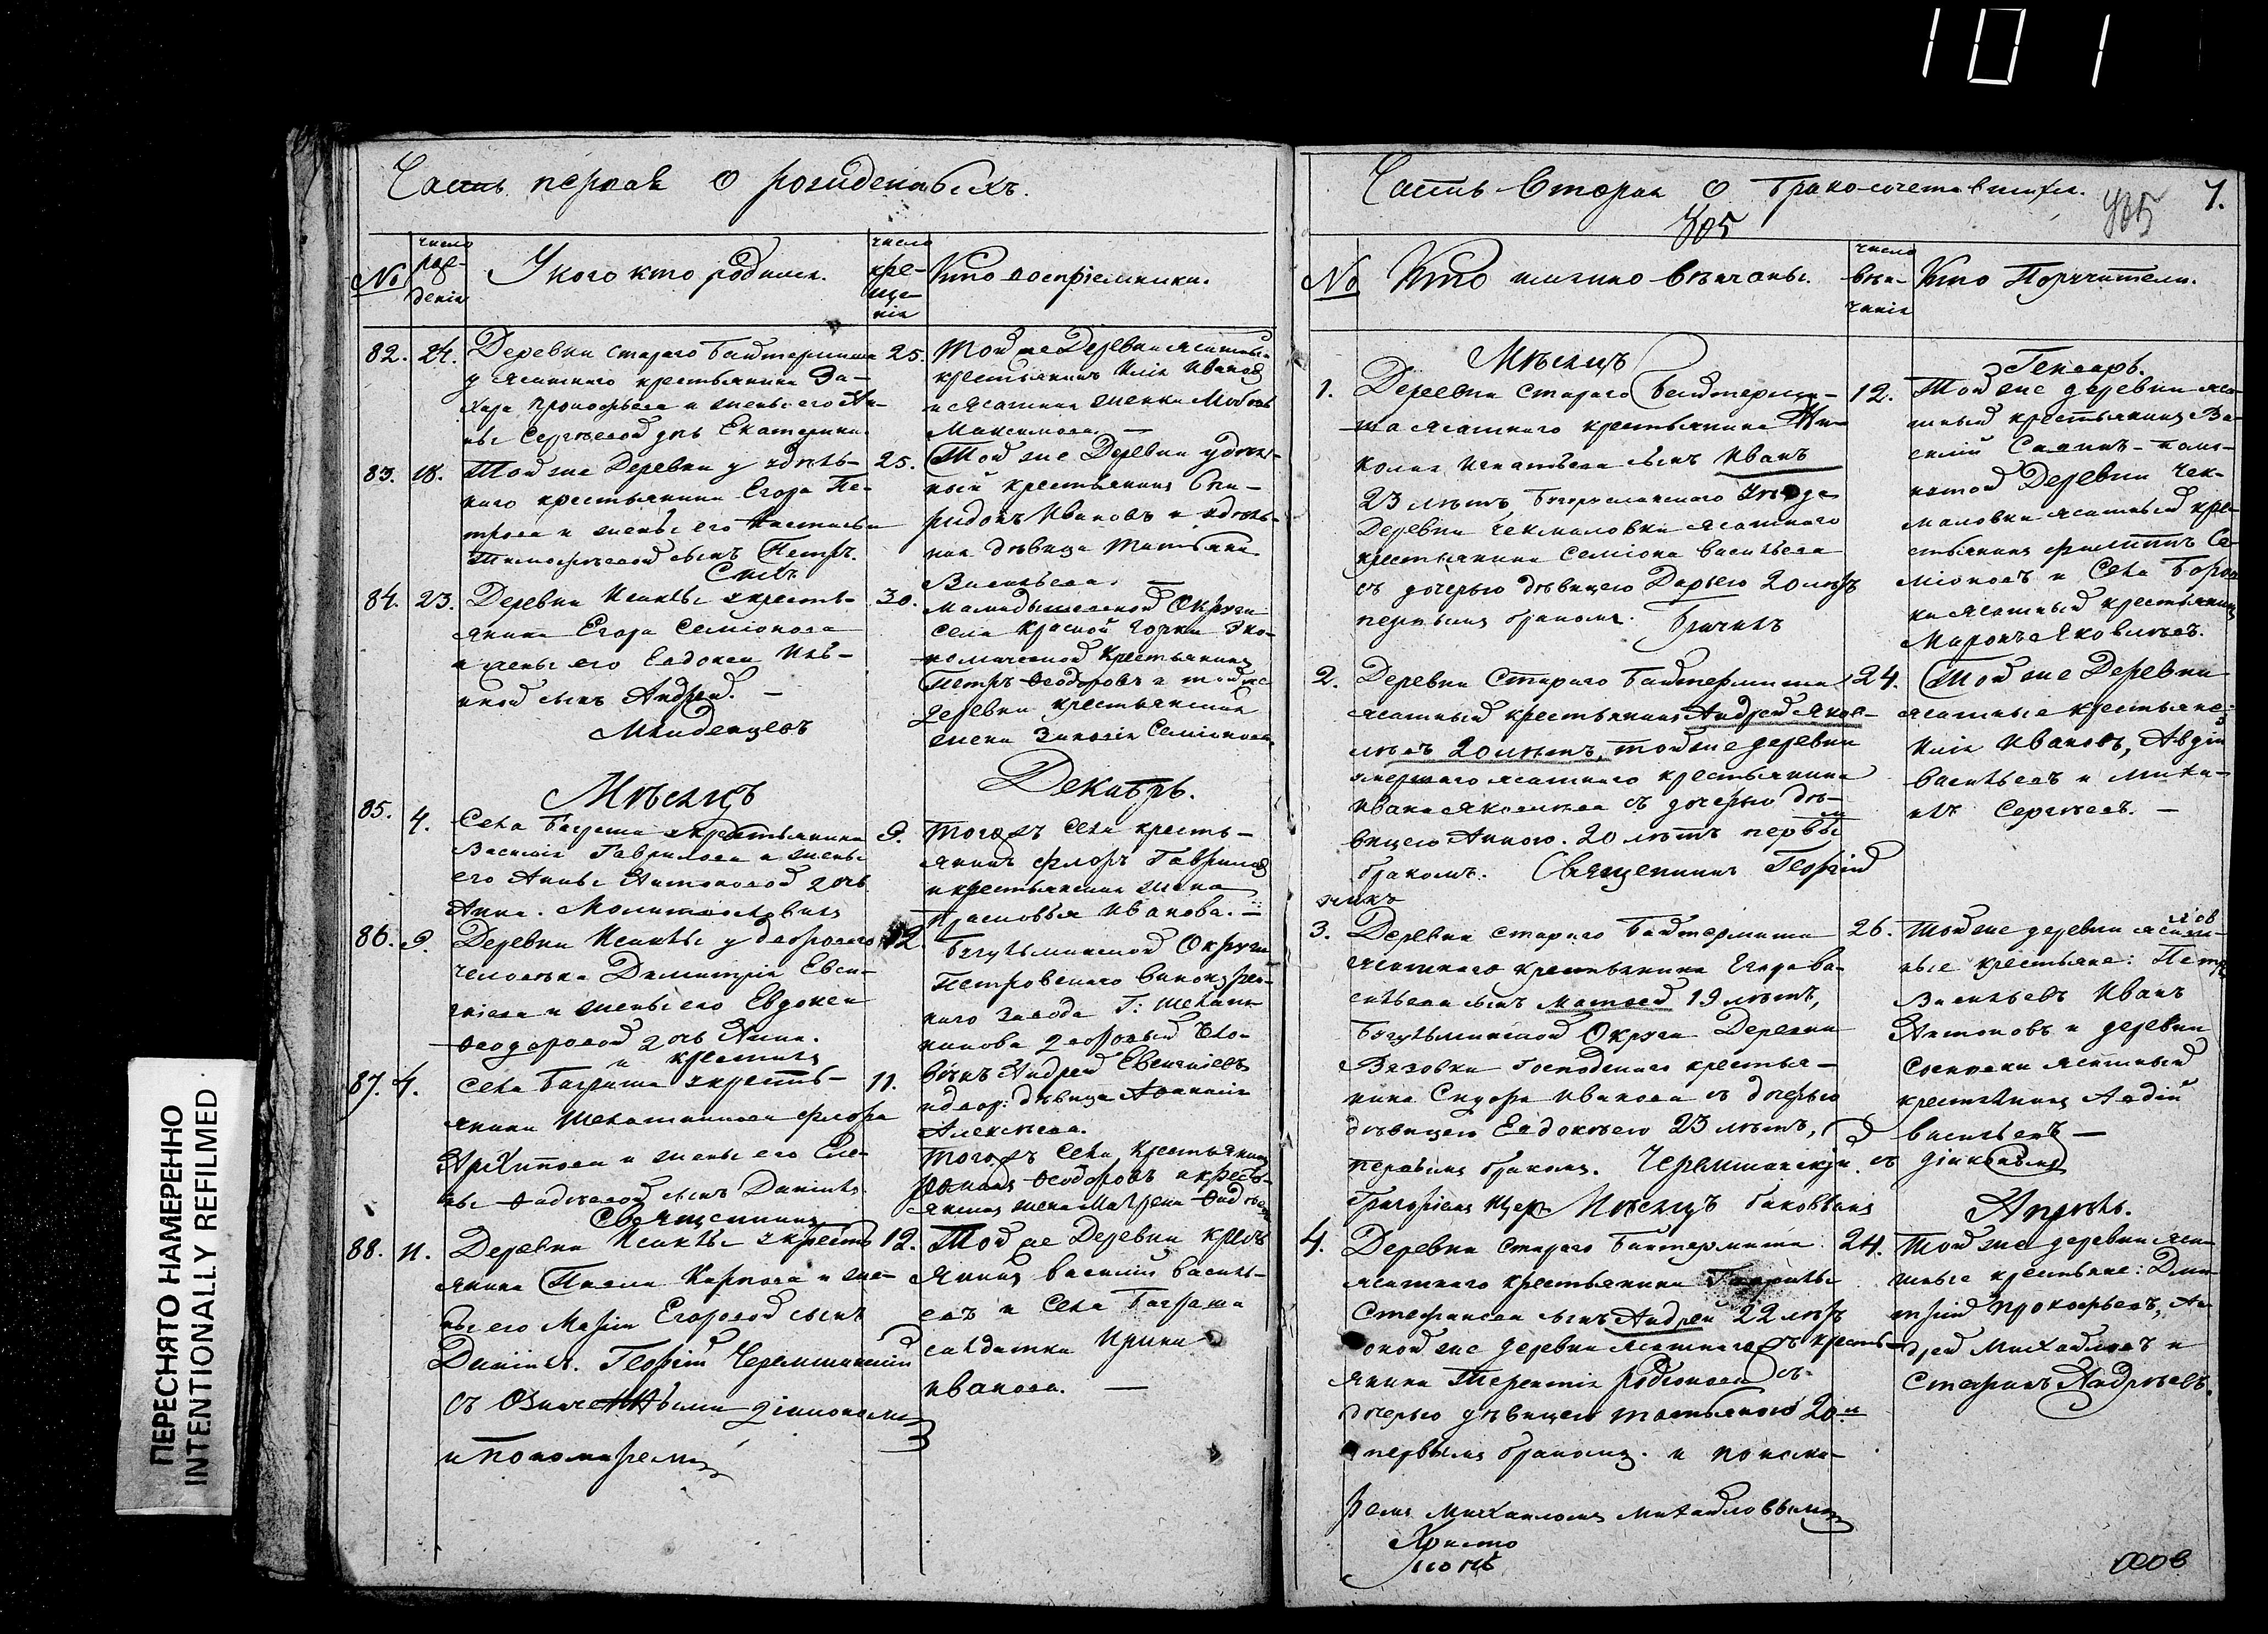 101
ПЕРЕСНЯТО НАМЕРЕННО
INTENTIONALLY REFILMED
Часть первая о рожденныхъ.
№
число рождения
У кого кто родился.
число крещенія
Кто воспріемники.
82. 24.
Деревни стараго Байтермиша
у ясашнаго крестьянина За-
хара Прокофьева и жены его Ан-
ны Сергѣевой дочь Екатерина
25.
Той же Деревни ясашный
крестьянинъ Илія Ивановъ
и ясашная женка
Максимова. —
83. 18.
Той же Деревни у удѣль-
наго крестьянина Егора Пе-
трова и жены его Настасьи
Тимофѣевой сынъ Петръ.
Сихъ
25.
Той же Деревни удѣль-
ный крестьянинъ Спи-
ридонъ Ивановъ и удѣль-
ная дѣвица Татьяна
Васильева. —
84. 23.
Деревни Исаклы у кресть-
янина Егора Семіонова
и жены его Евдокеи Иль-
иной сынъ Андрей. —
Младенцевъ
30.
Мамадышевской Округи
села Красной Горки Эко-
номической крестьянинъ
Петръ Ѳеодоровъ и той же
деревни крестьянская
жена Зиновія Семіонова
Мѣсяцъ
Декабрь.
85. 4.
Села Баграша у крестьянина
Василія Гаврилова и жены
его Анны Антоновой дочь
Анна. Молитвословилъ
9.
Тогожъ села кресть-
янинъ Флоръ Гавриловъ
и крестьянская жена
Прасковья Иванова. —
86. 9.
Деревни Исаклы у двороваго
человѣка Димитрія Евси-
гніева и жены его Евдокеи
Ѳеодоровой дочь Анна.
и крестилъ
12.
Бугульминской Округи
Петровскаго винокурен-
наго завода Г:
дворовый чело-
вѣкъ Андрей Евсигніевъ
и двор: дѣвица
Алексѣева.
87. 4.
Села Баграша у кресть-
янина Флора
Архипова и жены его Еле-
ны Ѳадѣевой сынъ Даніилъ.
Священникъ
11.
Тогожъ Села Крестьянинъ
Ѳеодоровъ и кресть-
янская жена Матрена
88. 11.
Деревни Исаклы у кресть-
янина Павла Карпова и же-
ны его Маріи Егоровой сынъ
Даніилъ. Георгій Черемшанскій
съ означенными діакономъ
и пономаремъ
12.
Той же Деревни кресть-
янинъ Василій Василь-
евъ и Села Баграша
салдатка Ирина
Иванова. —
Часть Вторая О бракосочетавшихся.
405
405
7.
№
Кто имянно вѣнчаны.
число вѣнчанія
Кто Поручители.
Мѣсяцъ
Генварь.
1.
Деревни Стараго Байтерми-
ша ясашнаго крестьянина Ни-
колая Игнатьева сынъ Иванъ
23 лѣтъ, Бугурусланскаго Уѣзда
Деревни Чекмаловки ясашнаго
крестьянина Семіона Васильева
съ дочерью дѣвицею Дарьею 20 лѣтъ
первымъ бракомъ.
12.
Той же деревни яса-
шный крестьянинъ Ва-
силій
Деревни Чек-
маловки ясашный кре-
стьянинъ Филиппъ Се-
міоновъ и Села Боров-
ки ясашный крестьянинъ
Миронъ Яковлевъ.
2.
Деревни Стараго Байтермиша
ясашный крестьянинъ Андрей Яков-
левъ 20 лѣтъ, той же деревни
умершаго ясашнаго крестьянина
Ивана Яковлева съ дочерью дѣ-
вицею Анною. 20 лѣтъ первымъ
бракомъ. Священникъ Георгій
24.
Той же Деревни
ясашные крестьяне:
Илія Ивановъ, Авдій
Васильевъ и Миха-
илъ Сергѣевъ. —
3.
Деревни стараго Байтермиша
ясашнаго крестьянина Егора Ва-
сильева сынъ Матвей 19 лѣтъ,
Бугульминской Округи Деревни
Вязовки Господскаго крестья-
нина Сидора Иванова съ дочерью
дѣвицею Евдокѣею 23 лѣтъ,
первымъ бракомъ. Черемшанскій съ діакономъ
26.
Той же деревни ясаш-
ные крестьяне: Петръ
Васильевъ Иванъ
Антоновъ и деревни
Сосновки ясашный
крестьянинъ Авдій
Васильевъ —
Григоріемъ Мѣсяцъ
Апрѣль.
4.
Деревни стараго Байтермиша
ясашнаго крестьянина Гаврилы
Стефанова сынъ Андрей 22 лѣтъ
оной же деревни ясашнаго кресть-
янина Терентія Родіонова съ
дочерью дѣвицею Татьяною 20
первымъ бракомъ. и понома-
ремъ Михаиломъ Михайловымъ
24.
Той же деревни яса-
шные крестьяне: Дми-
трій Прокофьевъ, Ан-
дрей Михайловъ и
Стефанъ Андреевъ.